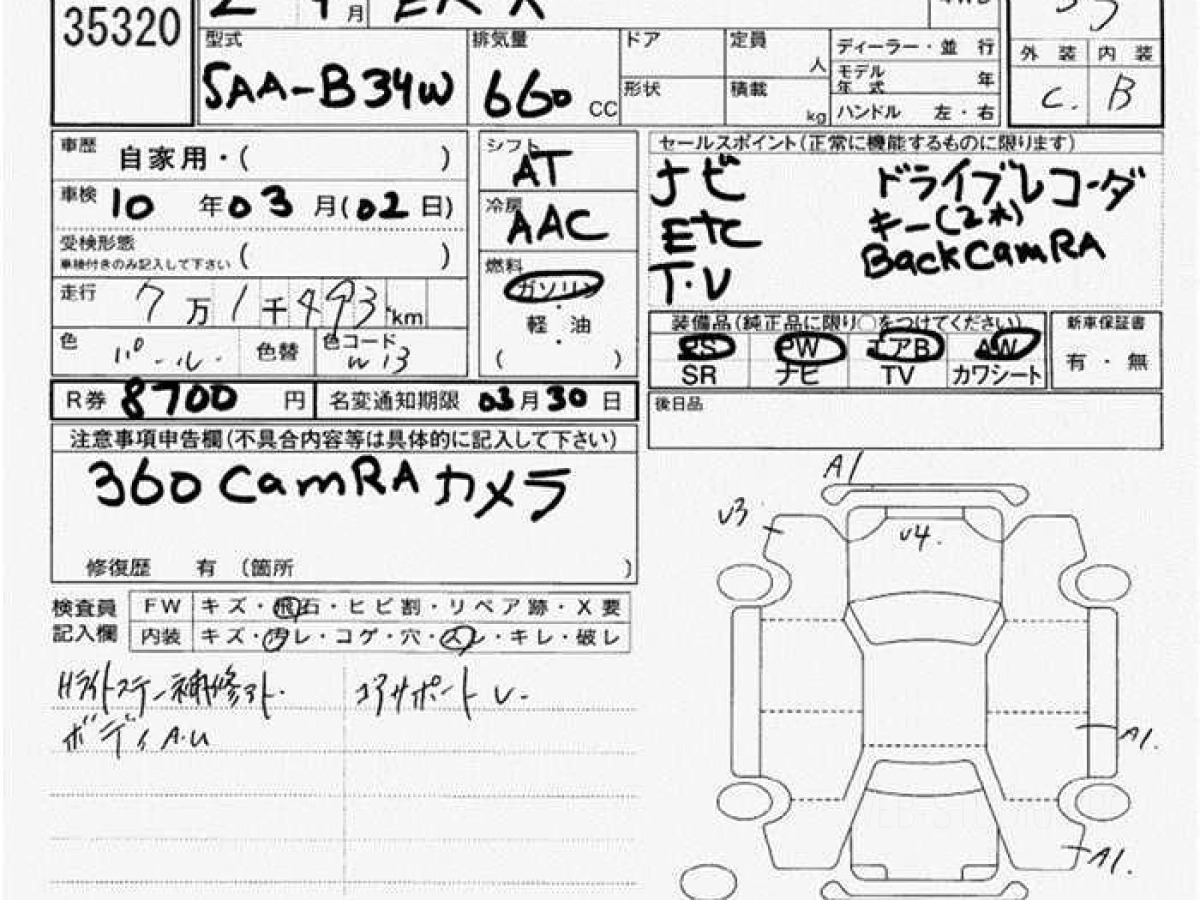 35320
月
型式 排気量 ドア 定員 人 ディーラー・並 行
5AA-B34W 660 CC 形状 積載 kg モデル年式 年
ハンドル 左・右
外 装 内 装
C. B
車歴 自家用・( )
車検 10 年 03 月(02日)
受検形態 ( )
車検付きのみ記入して下さい
走行 7万1千493 km
色 パール. 色替 色コード W13
シフト AT
冷房 AAC
燃料
ガソリン
・
軽 油
( )
セールスポイント(正常に機能するものに限ります)
ナビ ドライブレコーダ
ETC キー(2本)
T.V BackCamRA
装備品(純正品に限り○をつけてください)
PS PW エアB AW
SR ナビ TV カワシート
新車保証書
有・無
R券 8700 円 名変通知期限 03月30日
後日品
注意事項申告欄(不具合内容等は具体的に記入して下さい)
360 CamRA カメラ
修復歴 有 (箇所 )
検査員記入欄
FW キズ・飛石・ヒビ割・リペア跡・X要
内装 キズ・汚レ・コゲ・穴・スレ・キレ・破レ
Hライトステー補修アト. コアサポート U-
ボディA.U
A1
U3
U4.
A1.
A1.